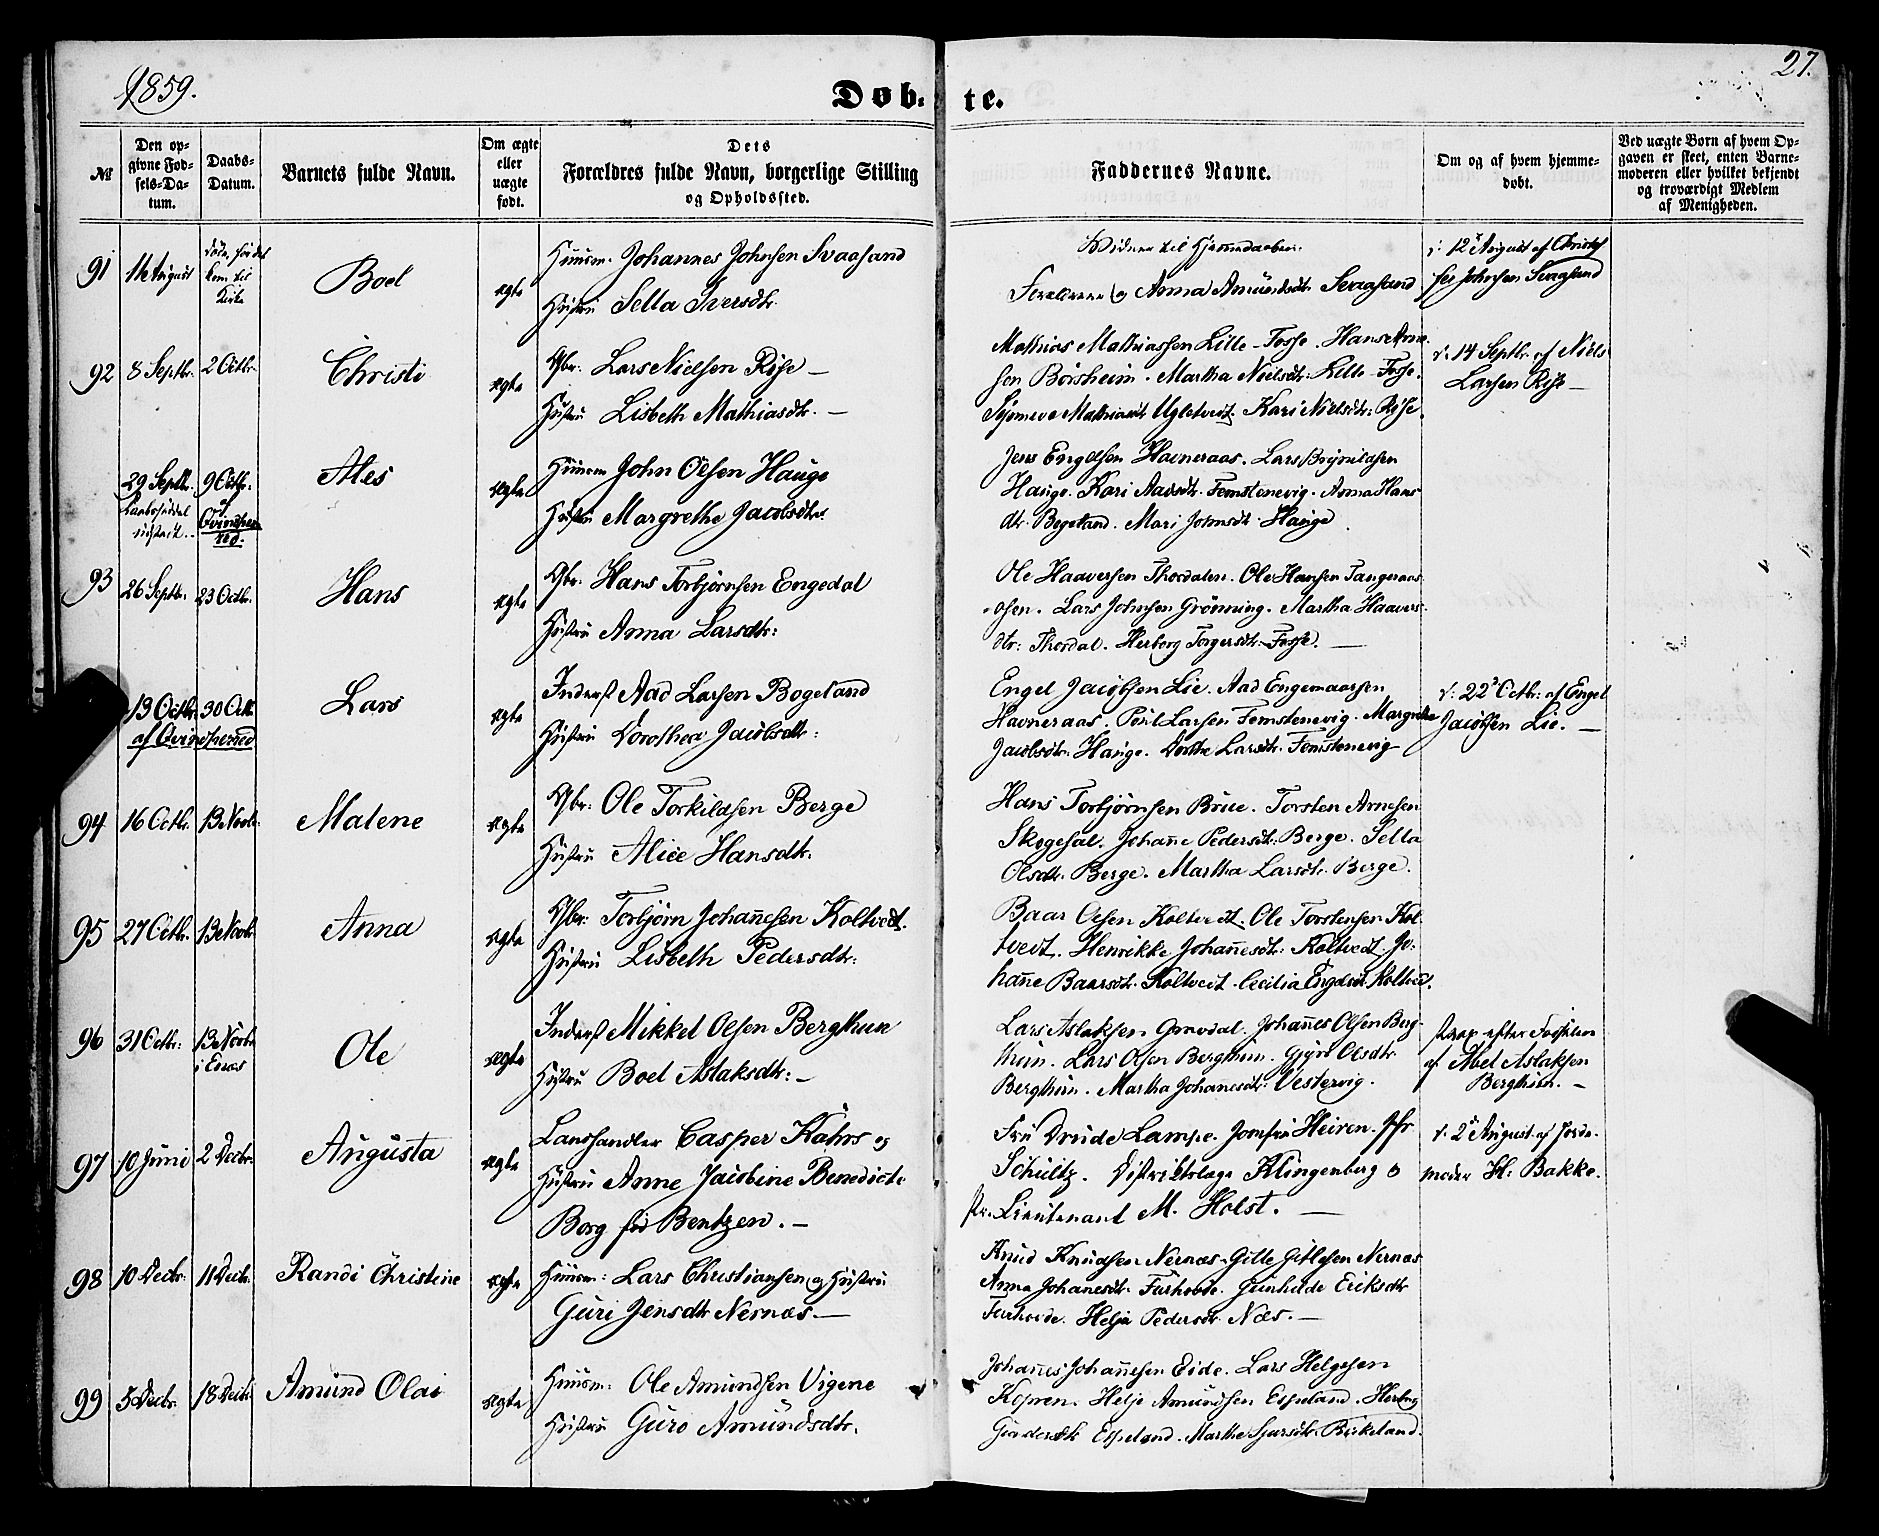 1859.
Dob-
te.
27.
№
Den op-
givne Fod-
sels-Da-
tum.
Daabs-
Datum.
Barnets fulde Navn.
Om ægte
eller
uægte
født.
Dets
Forældres fulde Navn, borgerlige Stilling
og Opholdssted.
Faddernes Navne.
Om og af hvem hjemme-
døbt.
Ved uægte Børn af hvem Op-
gaven er skeet, enten Barne-
moderen eller hvilket bekjendt
og troværdigt Medlem
af Menigheden.
91
11 August
døde, før det
kom til
Kirke
Boel
ægte
Huusm. Johannes Johnsen Svaasand
Hustru Sella Iversdtr.
Vidner til Hjemmedaaben:
Forældrene og Anna Amundsdtr. Svaasand
d: 12te August af Christof
fer Johnsen Svaasand
92
8 Septbr.
2 Octbr.
Christi
ægte
Gbr. Lars Nielsen Rise –
Hustru Lisbeth Mathiasdtr. –
Mathias Mathiassen Lille-Fosse. Hans Arne-
sen Börsheim. Martha Nielsdtr. Lille-Fosse.
Mathiasdt Ugletveit. Kari Nielsdtr: Rise.
d: 14 Septbr. af Niels
Larsen Rise –
29 Septbr.
9 Octbr.
af
Qvindher
red.
Ales
ægte
Huusm John Olsen Hauge
Hustru Margrethe Jacobsdtr.
Jens Engelsen Havneraas. Lars Brynildsen
Hauge. Kari Aadsdtr. Femstenevig. Anna Hans
dtr. Bogeland. Mari Johnsdtr. Hauge.
93
26 Septbr.
23 Octbr.
Hans
ægte
Gbr. Hans Torbjørnsen Engedal
Hustru Anna Larsdtr:
Ole Haaversen Thordalen. Ole Hansen Tangeraas-
osen. Lars Johnsen Grönning. Martha Haavers-
dtr: Thordal. Herborg Torgersdtr. Fosse. –
13 Octbr.
30 Octbr
af Qvindherred
Lars
ægte
Inderst Aad Larsen Bogeland
Hustru Dorothea Jacobsdtr:
Engel Jacobsen Lie. Aad Engemaarsen
Havneraas. Poul Larsen Femstenevig. Margrethe
Jacobsdtr. Hauge. Dorthe Larsdtr. Femstenevig
d: 22de Octbr. af Engel
Jacobsen Lie. –
94
16 Octbr.
13 Novbr.
Malene
ægte
Gbr: Ole Torkildsen Berge
Hustru Alice Hansdtr:
Hans Torbjørnsen Brue. Torsten Arnesen
Skogesal. Johanne Pedersdt: Berge. Sella
Olsdtr. Berge. Martha Larsdtr. Berge.
95
27 Octbr.
13 Novbr.
Anna
ægte
Gbr: Torbjørn Johannesen Koltvedt.
Hustru Lisbeth Pedersdtr:
Baar Olsen Koltvedt. Ole Torstensen Kol-
tvedt. Henrikke Johannesdt: Koltvedt. Jo-
hanne Baarsdtr. Koltvedt. Cecilia Engelsdt. Koltvedt.
96
31 Octbr:
13 Novbr
i Enæs
Ole
ægte
Inderst Mikkel Olsen Bergthun
Hustru Boel Aslaksdtr: –
Lars Aslaksen Gravdal. Johannes Olsen Berg-
thun. Lars Olsen Bergthun. Gjøri Olsdtr
Bergthun. Martha Johanesdtr: Vestervig.
strax efter Fødselen
af Abel Aslaksen
Bergthun. –
97
10 Juni
2 Decbr.
Augusta
ægte
Landhandler Casper Kahrs og
Hustru Anne Jacobine Benedicte
Borg født Bentzen. –
Fru Drude Lampe. Jomfru Heiren. Jfr
Schultz. Distriktslæge Klingenberg o
Lieutenant M. Holst. –
d: 2de August af Jorde-
moder H: Bakke.
98
10 Decbr.
11 Decbr.
Randi Christine
ægte
Huusm: Lars Christiansen og Hustru
Guri Jensdtr Nernæs. –
Knud Knudsen Nernæs. Gitle Gitlesen Nernæs
Anna Johanesdtr. Furhovde. Gunhilde Eriksdtr
Furhovde. Helje Pedersdtr. Næs. –
99
5 Decbr.
18 Decbr.
Amund Olai
ægte
Huusm: Ole Amundsen Vigene
Hustru Guro Amundsdtr.
Johannes Johannesen Eide. Lars Helgesen
Helje Amundsen Espeland. Herborg
Espeland. Marthe Sjursdtr. Birkeland.